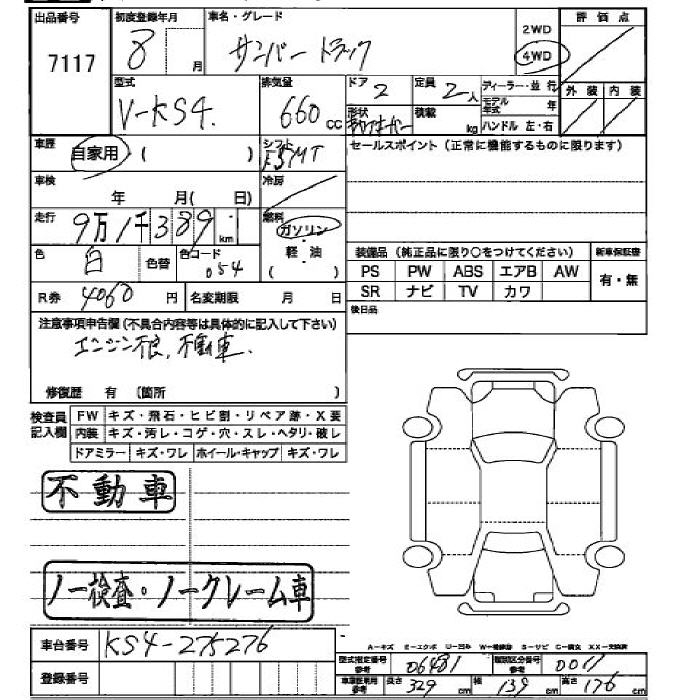 出品番号 初度登録年月 車名・グレード 2WD 評価点
7117 8 月 サンバートラック 4WD
型式 排気量 ドア 定員 ディーラー・並行 外装 内装
V-KS4. 660 cc 2 2人 モデル年式 年
形状 積載 kg ハンドル 左・右
車歴 自家用 ( ) シフト F5MT セールスポイント(正常に機能するものに限ります)
車検 年 月( 日) 冷房
走行 9万1千389 km 燃料 ガソリン・軽油 ( )
色 白 色替 色コード 054 装備品(純正品に限り○をつけてください) 新車保証書
PS PW ABS エアB AW 有・無
R券 4060 円 名変期限 月 日 SR ナビ TV カワ
後日品
注意事項申告欄(不具合内容等は具体的に記入して下さい)
エンジン不良、不動車.
修復歴 有 (箇所 )
検査員記入欄 FW キズ・飛石・ヒビ割・リペア跡・X要
内装 キズ・汚レ・コゲ・穴・スレ・ヘタリ・破レ
ドアミラー キズ・ワレ ホイール・キャップ キズ・ワレ
不動車
ノー検査・ノークレーム車
車台番号 KS4-275276
A-キズ E-エクボ U-凹み W-補修跡 S-サビ C-腐食 XX-交換済
型式指定番号 参考 06481 類別区分番号 参考 0011
登録番号 車庫証明用 参考 長さ 329 cm 幅 139 cm 高さ 176 cm